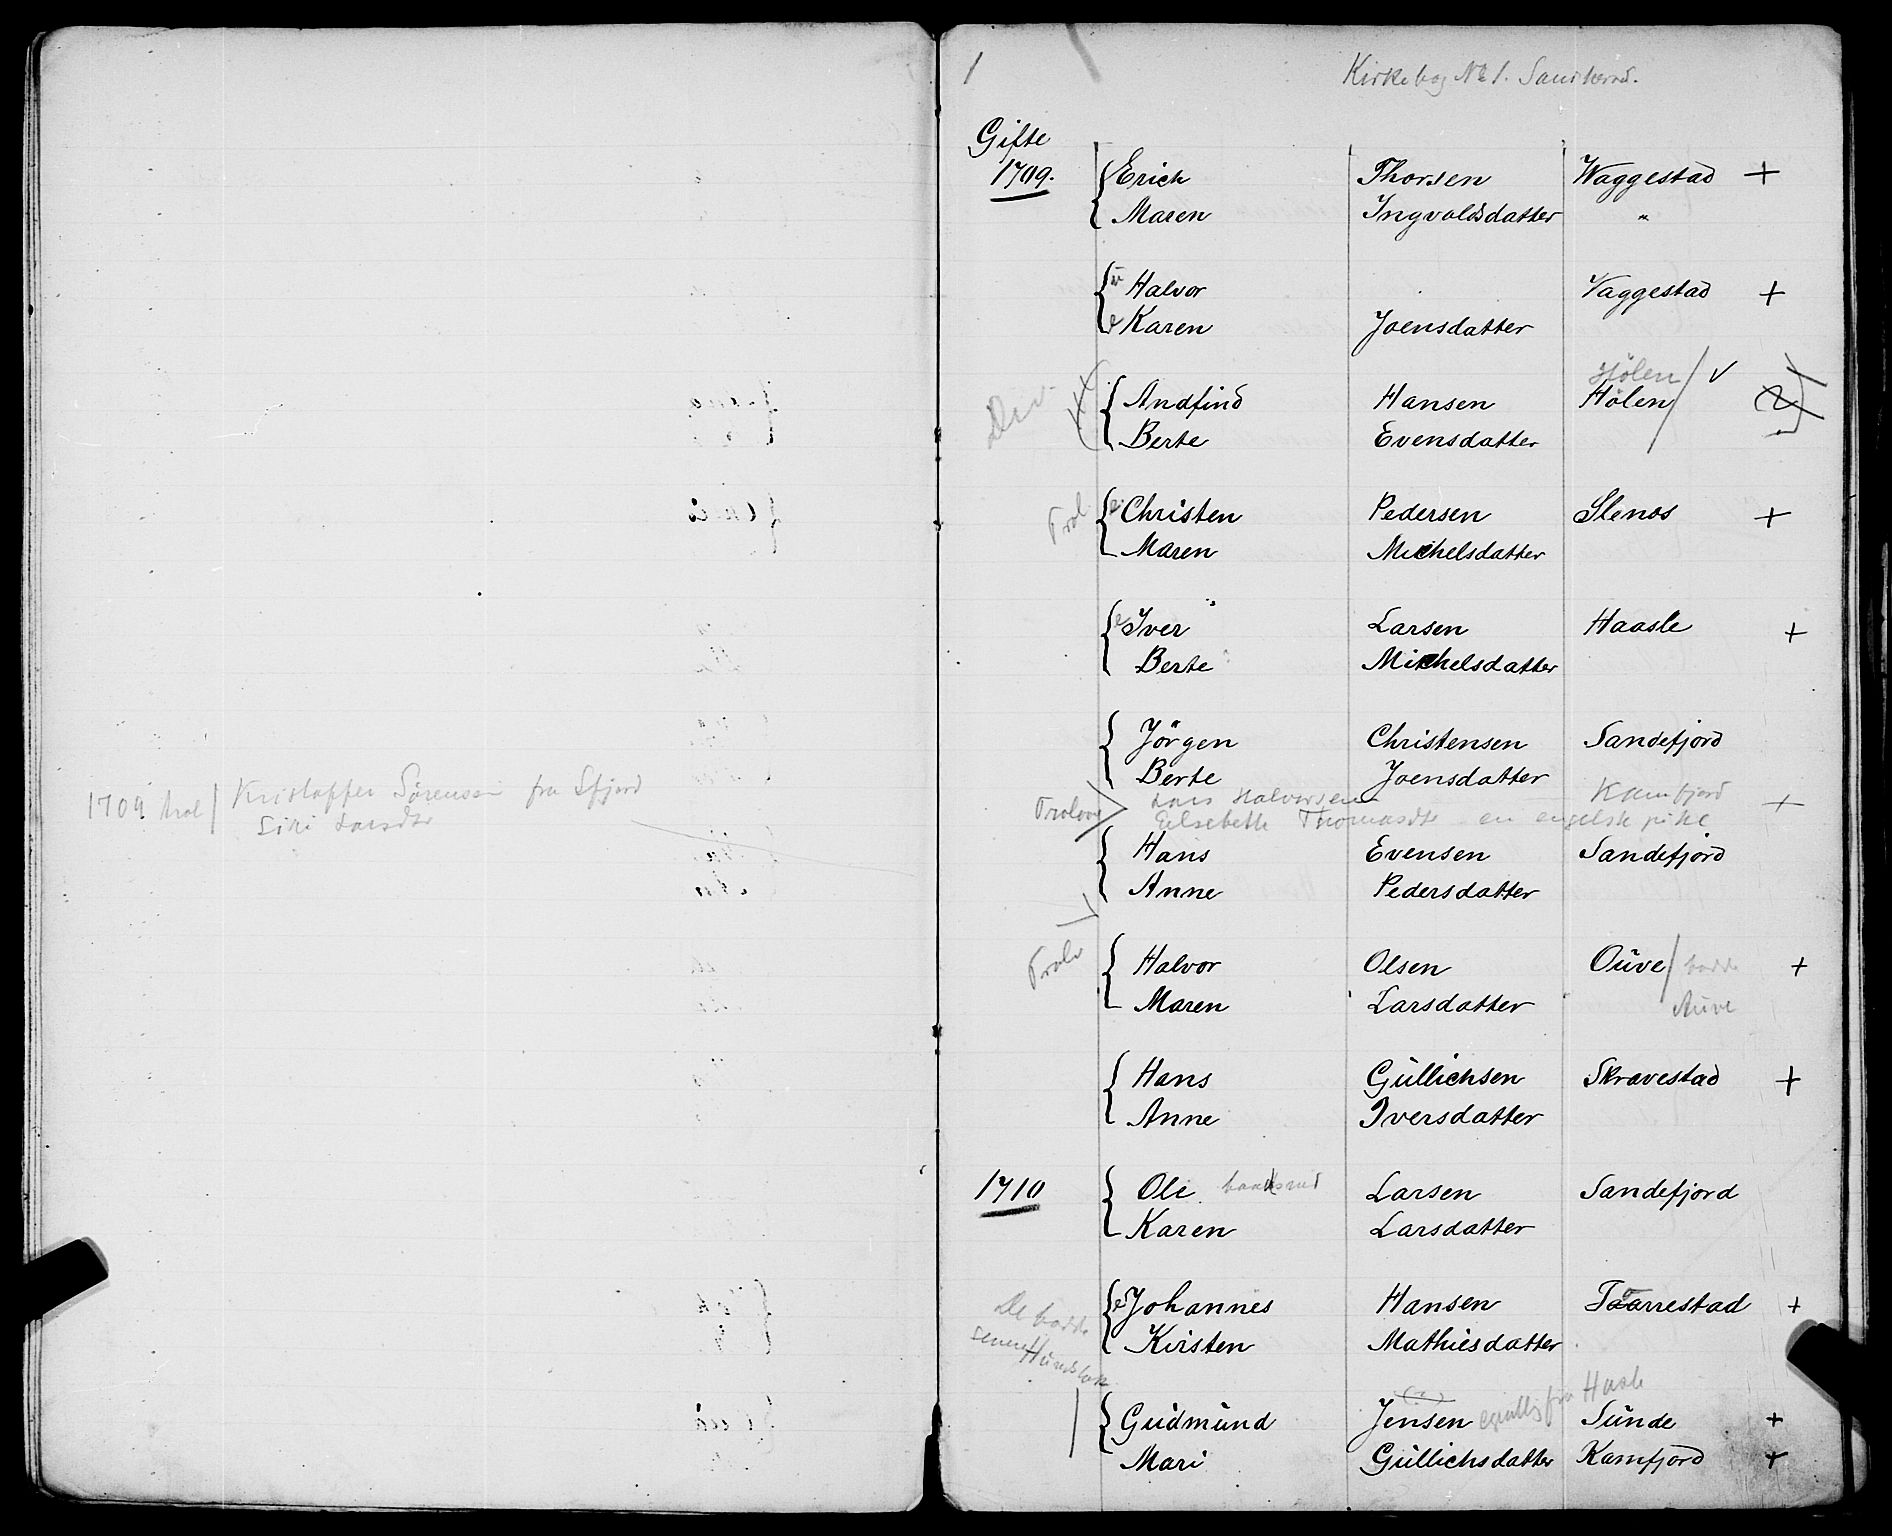 1709 trol / Kristoffer Sørensen fra Sfjord
Siri Larsdtr
1
Kirkebog No 1. Sandherred.
Gifte
1709. Erich Thorsen Waggestad +
Maren Ingvoldsdatter "
Halvor Vaggestad +
Karen Joensdatter
Hølen / v
Andfind Hansen Hølen
Berte Evensdatter
Trol Christen Pedersen Slenos +
Maren Michelsdatter
Iver Larsen Haasle +
Berte Michelsdatter
Jörgen Christensen Sandefjord
Berte Joensdatter
Trolov Lars Halvorsen Kamfjord +
Eelsebeth Thomasdtr en engelsk pike
Hans Evensen Sandefjord
Anne Pedersdatter
Trolv Halvor Olsen Oüve / bodde +
Maren Larsdatter Auve
Hans Güllichsen Skravestad +
Anne Iversdatter
1710 Ole Larsen Sandefjord
Karen Larsdatter
De bodde Johannes Hansen Taarrestad +
senere Hundstok Kirsten Mathiesdatter
fra Hasle
Güdmünd Jensen Sünde +
Mari Güllichsdatter Kamfjord +